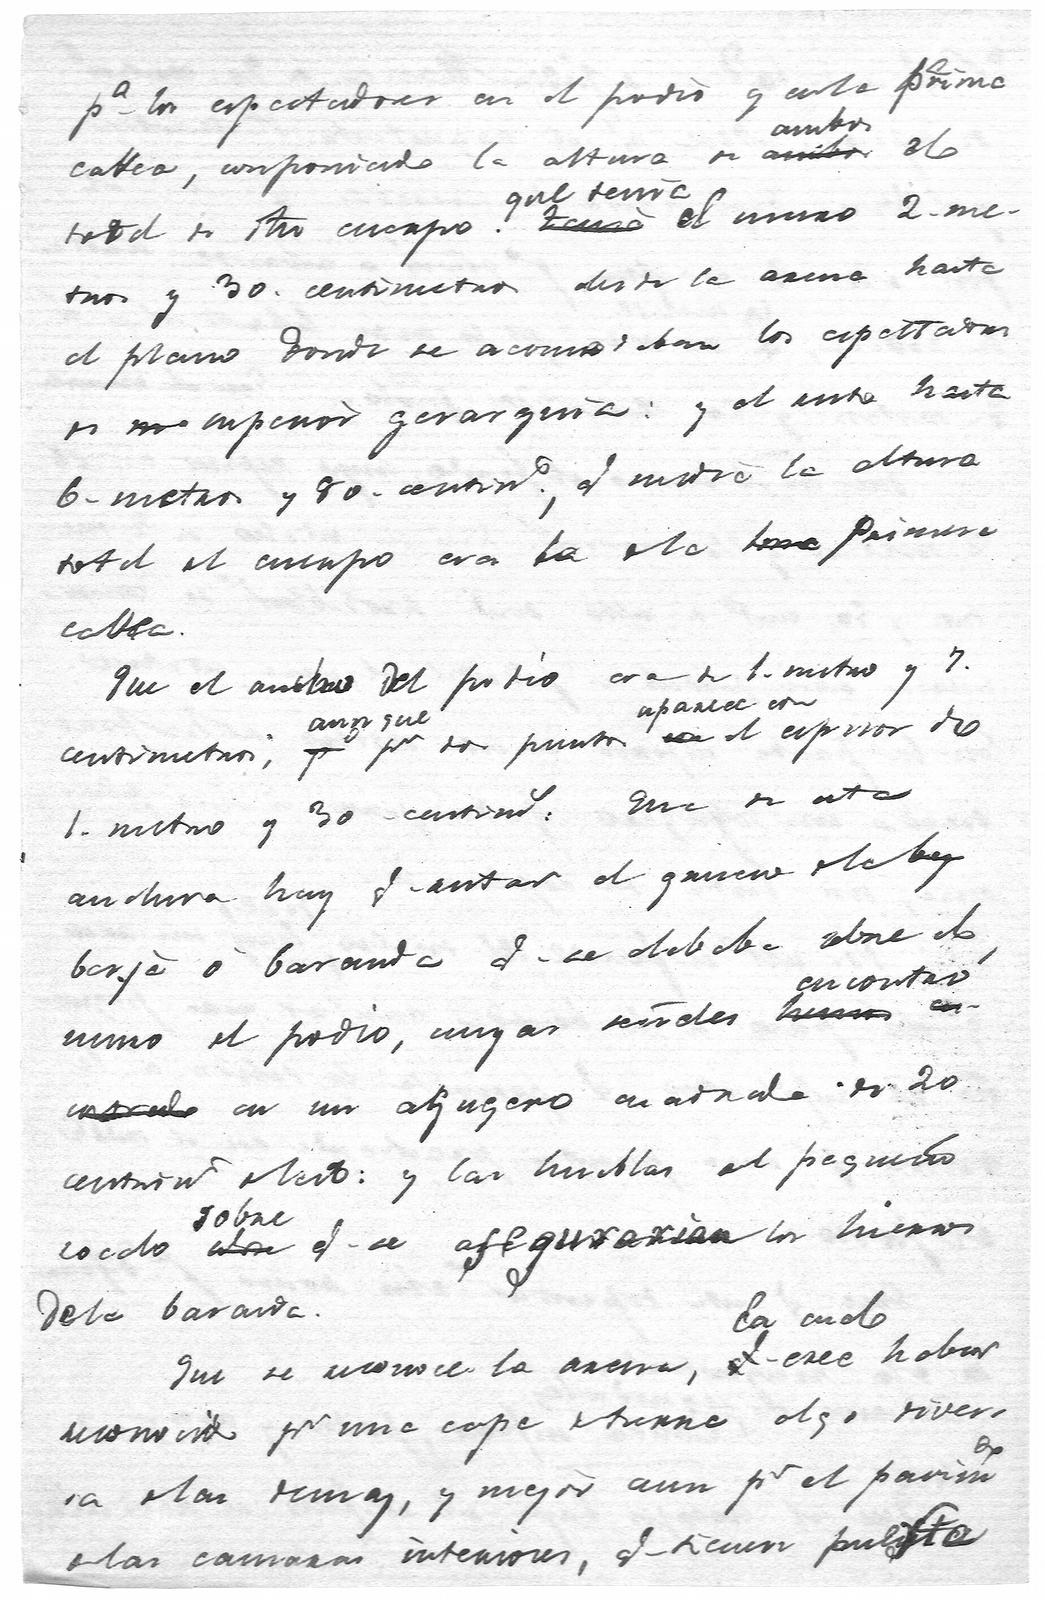 pª los espectadores en el podio y en la prima
cavea, componiendo la altura de ambos ambos el
total de dho cuerpo: que tenia tenia el muro 2-me-
tros y 30. centimetros desde la arena hasta
el plano donde se acomodaban los espectadores
de superior gerarquia: y el resto hasta
6-metros y 80-centimº, q media la altura
total del cuerpo era la de la primera
cavea.
Que el ancho del podio era de 1. metro y 7.
centimetros; aunque pr dos puntos aparece con el espesor de
1. metro y 30 centims: Que de esta
anchura hay q-restar el grueso de la
berja ó baranda q-se elebaba sobre el
muro del podio, cuyas señales encontró
en un abujero cuadrado de 20
centims de alto: y las huellas del pequeño
zocalo sobre q-se asegurarian los hierros
de la baranda.
Que se reconoce la arena, la cual q-cree haber
reconocido pr una capa de tierra algo diver-
sa de las demas, y mejor aun pr el pavimto
de las camaras interiores, q-tienen puesta